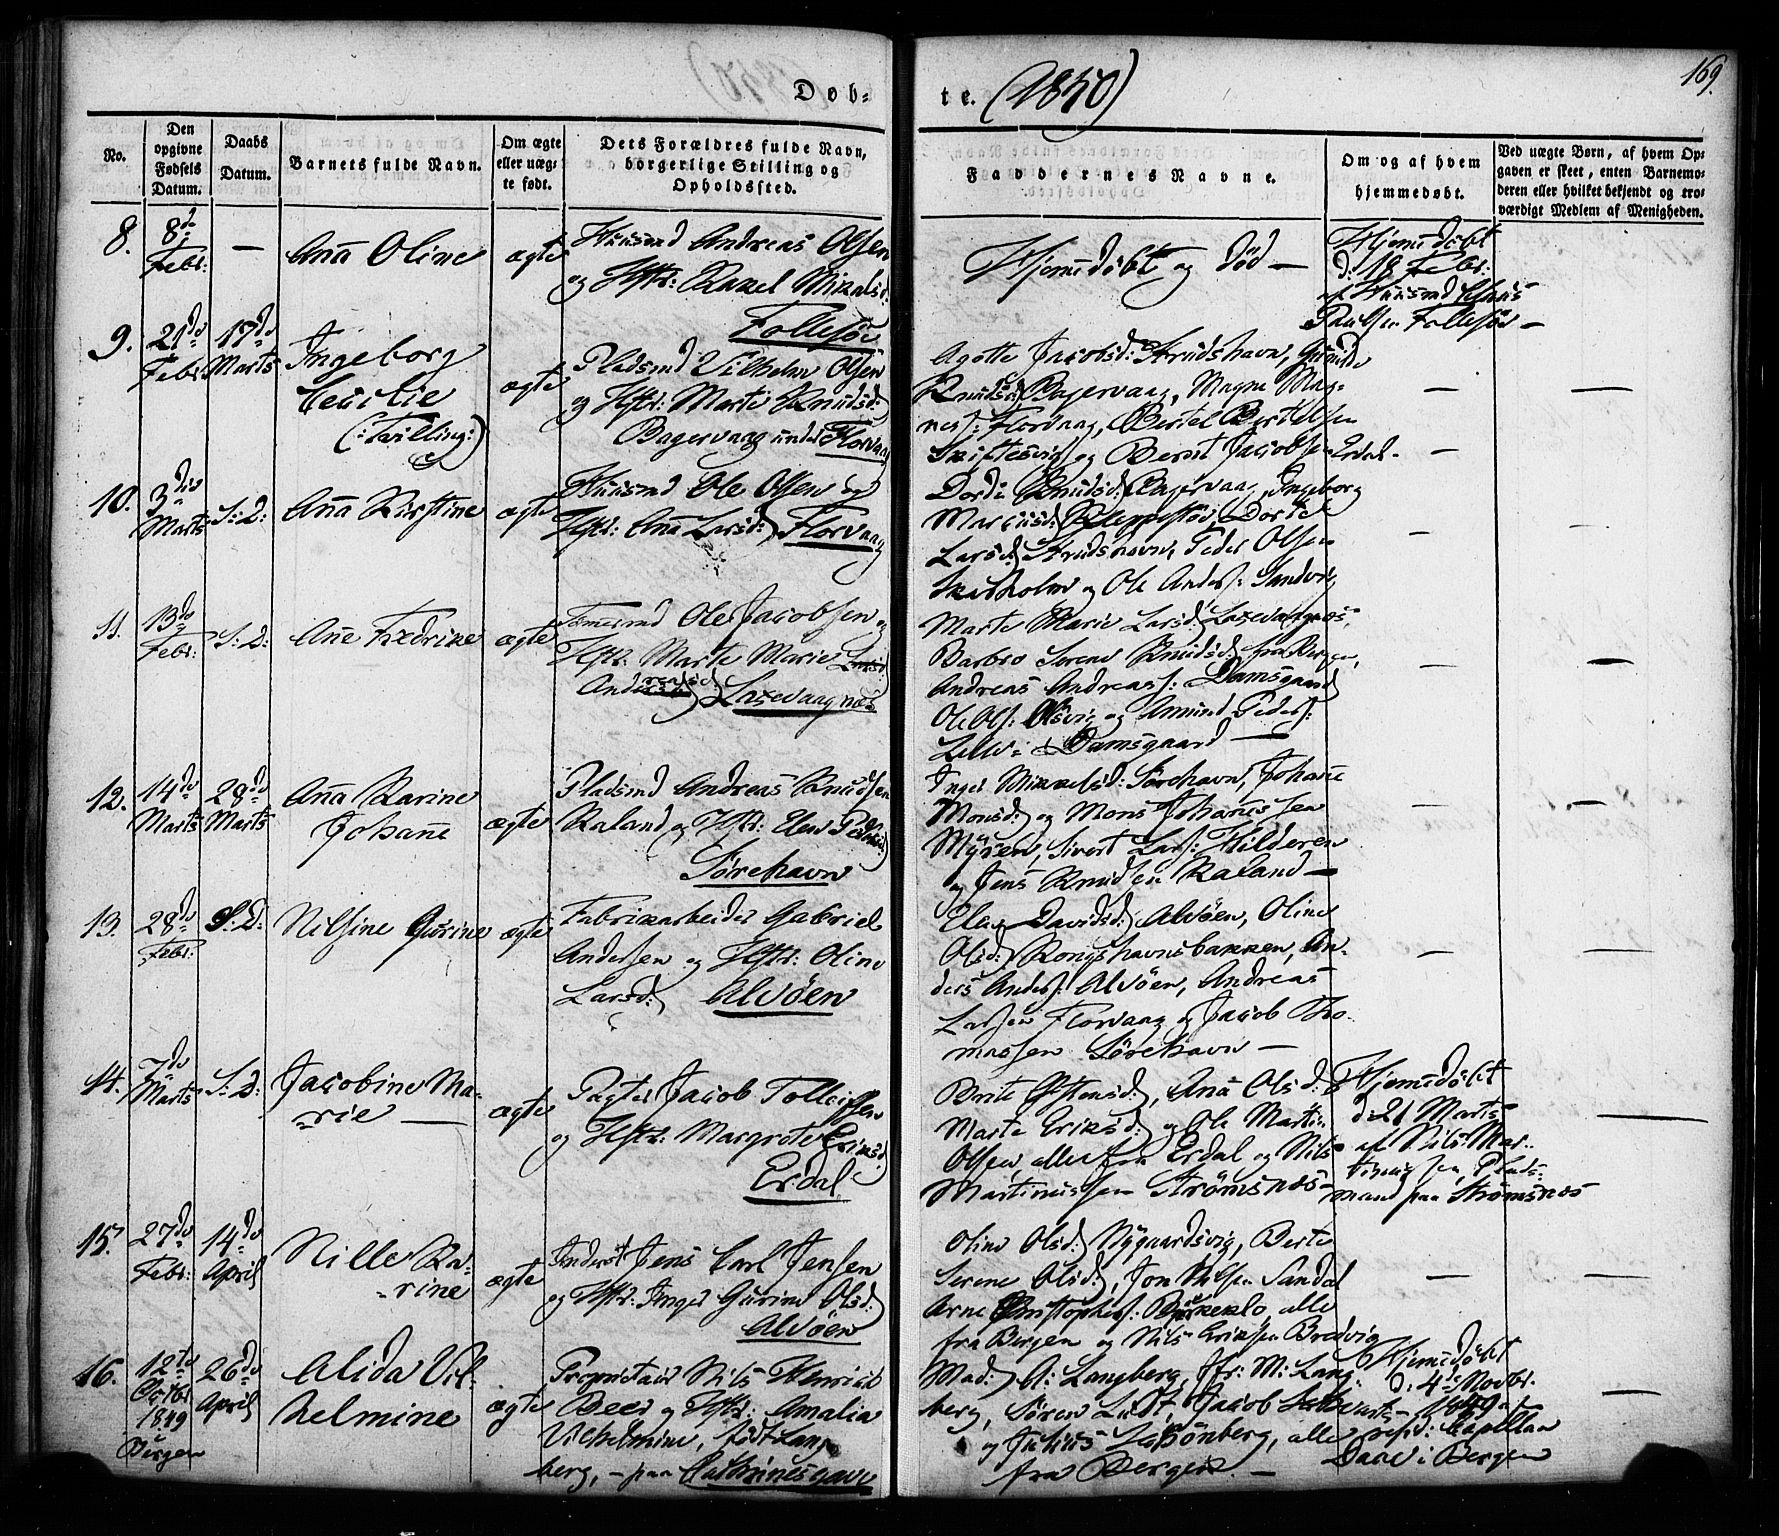 169.
Døb-
te. (1850)
No.
Den opgivne Fødsels Datum.
Daabs Datum.
Barnets fulde Navn.
Om ægte eller uæg-
te født.
Dets Forældres fulde Navn,
borgerlige Stilling og
Opholdssted.
Faddernes Navne.
Om og af hvem
hjemmedøbt.
Ved uægte Børn, af hvem Op-
gaven er skeet, enten Barnemo-
deren eller hvilket bekjendt og tro-
værdigt Medlem af Menigheden.
8.
8de
Febr:
—
Aña Oline
ægte
Huusmd Andreas Olsen
og Hstr: Rakel Mikalsd:
Follesøe
Hjemedøbt og død —
Hjemedøbt
d: 18 Febr:
af Huusmd
Paulsen Follesøe —
9.
21de
Febr
17de
Marts
Ingeborg
Cecilie
(: Tvilling :)
ægte
Pladsmd Vilhelm Olsen
og Hstr: Marte Knudsd:
Bagervaag under Florvaag
Agotte Jacobsd: Strudshavn,
Knudsd: Bagervaag, Magne Mag-
nes: Florvaag, Bertel Bertelsen
Skiftesvig og Bernt Jacobsen Erdal -
—
10.
3die
Marts
S: D:
Aña Kirstine
ægte
Huusmd Ole Olsen og
Hstr: Aña Larsd: Florvaag
Dorde Knudsd: Bagervaag, Ingeborg
Marcusd: Kleppestøe, Dorte
Larsd: Strudshavn, Peder Olsen
og Ole Anders: Sandvig
—
11.
13de
Febr:
S: D:
Añe Fredrike
ægte
Tomtmd Ole Jacobsen og
Hstr: Marte Marie Larsd:
Andreasd: Laxevaagnæs
Marte Marie Larsd: Laxevaagnæs,
Barbro Serene Knudsd: fra Bergen,
Andreas Andreas: Damsgaard
Ole Ols: Olsvig og Amund Peders:
Lille - Damsgaard —
12.
14de
Marts
28de
Marts
Aña Karine
Johañe
ægte
Pladsmd Andreas Knudsen
Raland og Hstr: Elen Pedersd:
Sørehavn
Inger Mikkelsd: Sørehavn, Johañe
Monsd: og Mons Johañessen
Myren, Sivert Lars: Hilderen
og Jens Knudsen Raland —
13.
28de
Febr:
S: D:
Nilsine Gurine
ægte
Fabrikarbeider Gabriel
Andersen og Hstr: Oline
Larsd: Alvøen
Elen Davidsd: Alvøen, Oline
Olsd: Kongshavnsbakken, An-
ders Anders: Alvøen, Andreas
Larsen Florvaag og Jacob Tho-
massen Sørehavn —
14.
7de
Marts
S: D:
Jacobine Ma-
rie —
ægte
Pagter Jacob Tolleifsen
og Hstr: Margrete Eriksd:
Erdal
Brite Østensd:, Aña Olsd:
Marte Eriksd: og Ole Martin
Olsen alle fra Erdal og Nils
Martinussen Strømsnæs -
Hjemedøbt
d: 21 Marts
af Nils Mar-
tinussen, Plads-
mand paa Strømsnæs
15.
27de
Febr:
14de
April
Nille Ka-
rine
ægte
Inderst Jens Carl Jensen
og Hstr: Inger Gurine Olsd:
Alvøen
Oline Olsd: Nygaardsvig, Berte
Serene Olsd:, Jon Nilsen Sandal
Arne Christophers: Birkeklo, alle
fra Bergen og Nils Eriksen Bredvig
—
16.
12te
Octbr
1849
Bergen
26de
April
Alida Vil-
helmine
ægte
Proprietair Nils Henrick
Beer og Hstr: Amalia
Vilhelmine, født Lang-
berg, - paa Cathrinesgave
Mad: A: Langberg, Jfr: M: Lang-
berg, Søren Lindt, Jacob
og Julius Schønberg, alle
fra Bergen. —
Hjemedøbt
d: 4de Novbr.
1849
resid: Capellan
Daae i Bergen